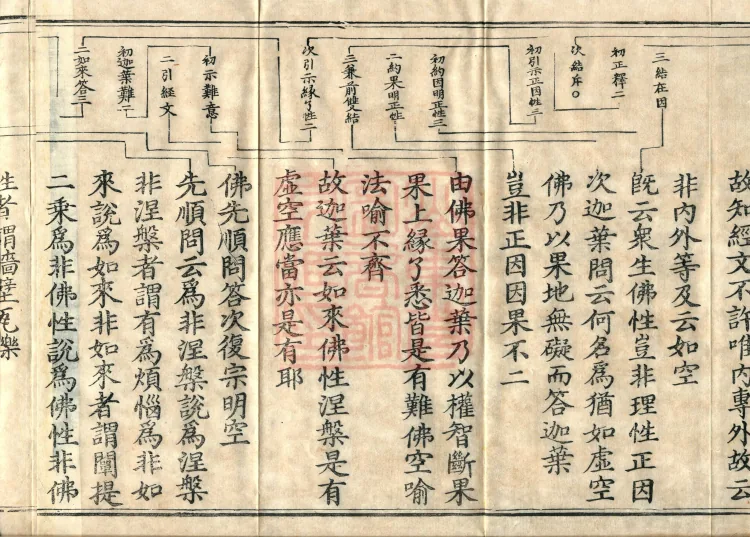 三結在因
初正釋二
次結斥〇
初引示正因性三
初約因明正性三
二約果明正性三
三兼前雙結
次引示緣了性二
初示難意
二引經文
初迦葉難二
二如來答三
故知經文不許唯內專外故云
非內外等及云如空
既云衆生佛性豈非理性正因
次迦葉問云何名爲猶如虛空
佛乃以果地無礙而答迦葉
豈非正因因果不二
由佛果答迦葉乃以權智斷果
果上緣了悉皆是有難佛空喻
法喻不齊
故迦葉云如來佛性涅槃是有
虛空應當亦是有耶
佛先順問答次復宗明空
先順問云爲非涅槃說爲涅槃
非涅槃者謂有爲煩惱爲非如
來說爲如來非如來者謂闡提
二乘爲非佛性說爲佛性非佛
生者謂牆壁瓦礫